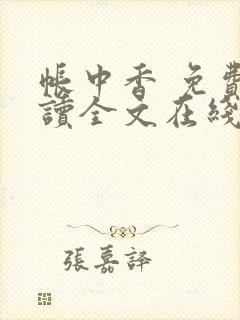 帳中香 免費
讀全文在綫
張嘉譯